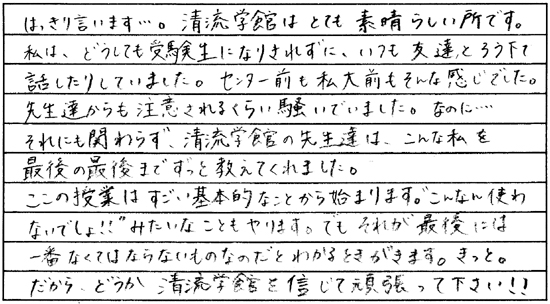 はっきり言います…。清流学館はとても素晴らしい所です。
私は、どうしても受験生になりきれずに、いつも友達とろう下で
話したりしていました。センター前も私大前もそんな感じでした。
先生達からも注意されるくらい騒いでいました。なのに…
それにも関わらず、清流学館の先生達は、こんな私を
最後の最後までずっと教えてくれました。
ここの授業はすごい基本的なことから始まります。"こんなん使わ
ないでしょ!!"みたいなこともやります。でもそれが最後には
一番なくてはならないものなのだとわかるときがきます。きっと。
だから、どうか清流学館を信じて頑張って下さい!!